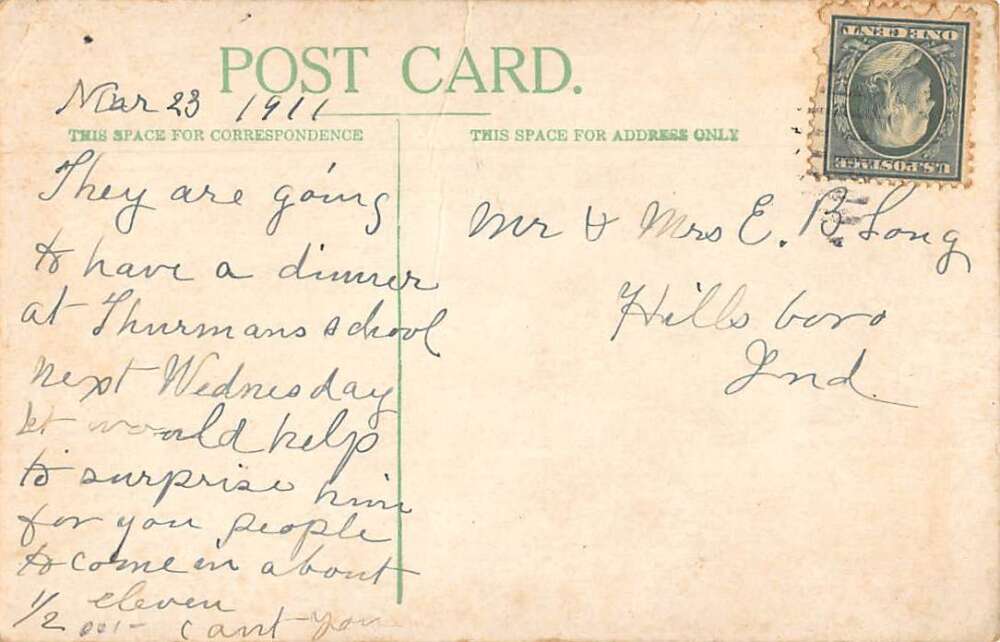 POST CARD.
Mar 23 1911
THIS SPACE FOR CORRESPONDENCE
They are going
to have a dinner
at Thurmans school
next Wednesday
it would help
to surprise him
for you people
to come in about
1/2 eleven
cant you
THIS SPACE FOR ADDRESS ONLY
Mr & Mrs E. B. Long
Hillsboro
Ind.
U.S. POSTAGE
ONE CENT